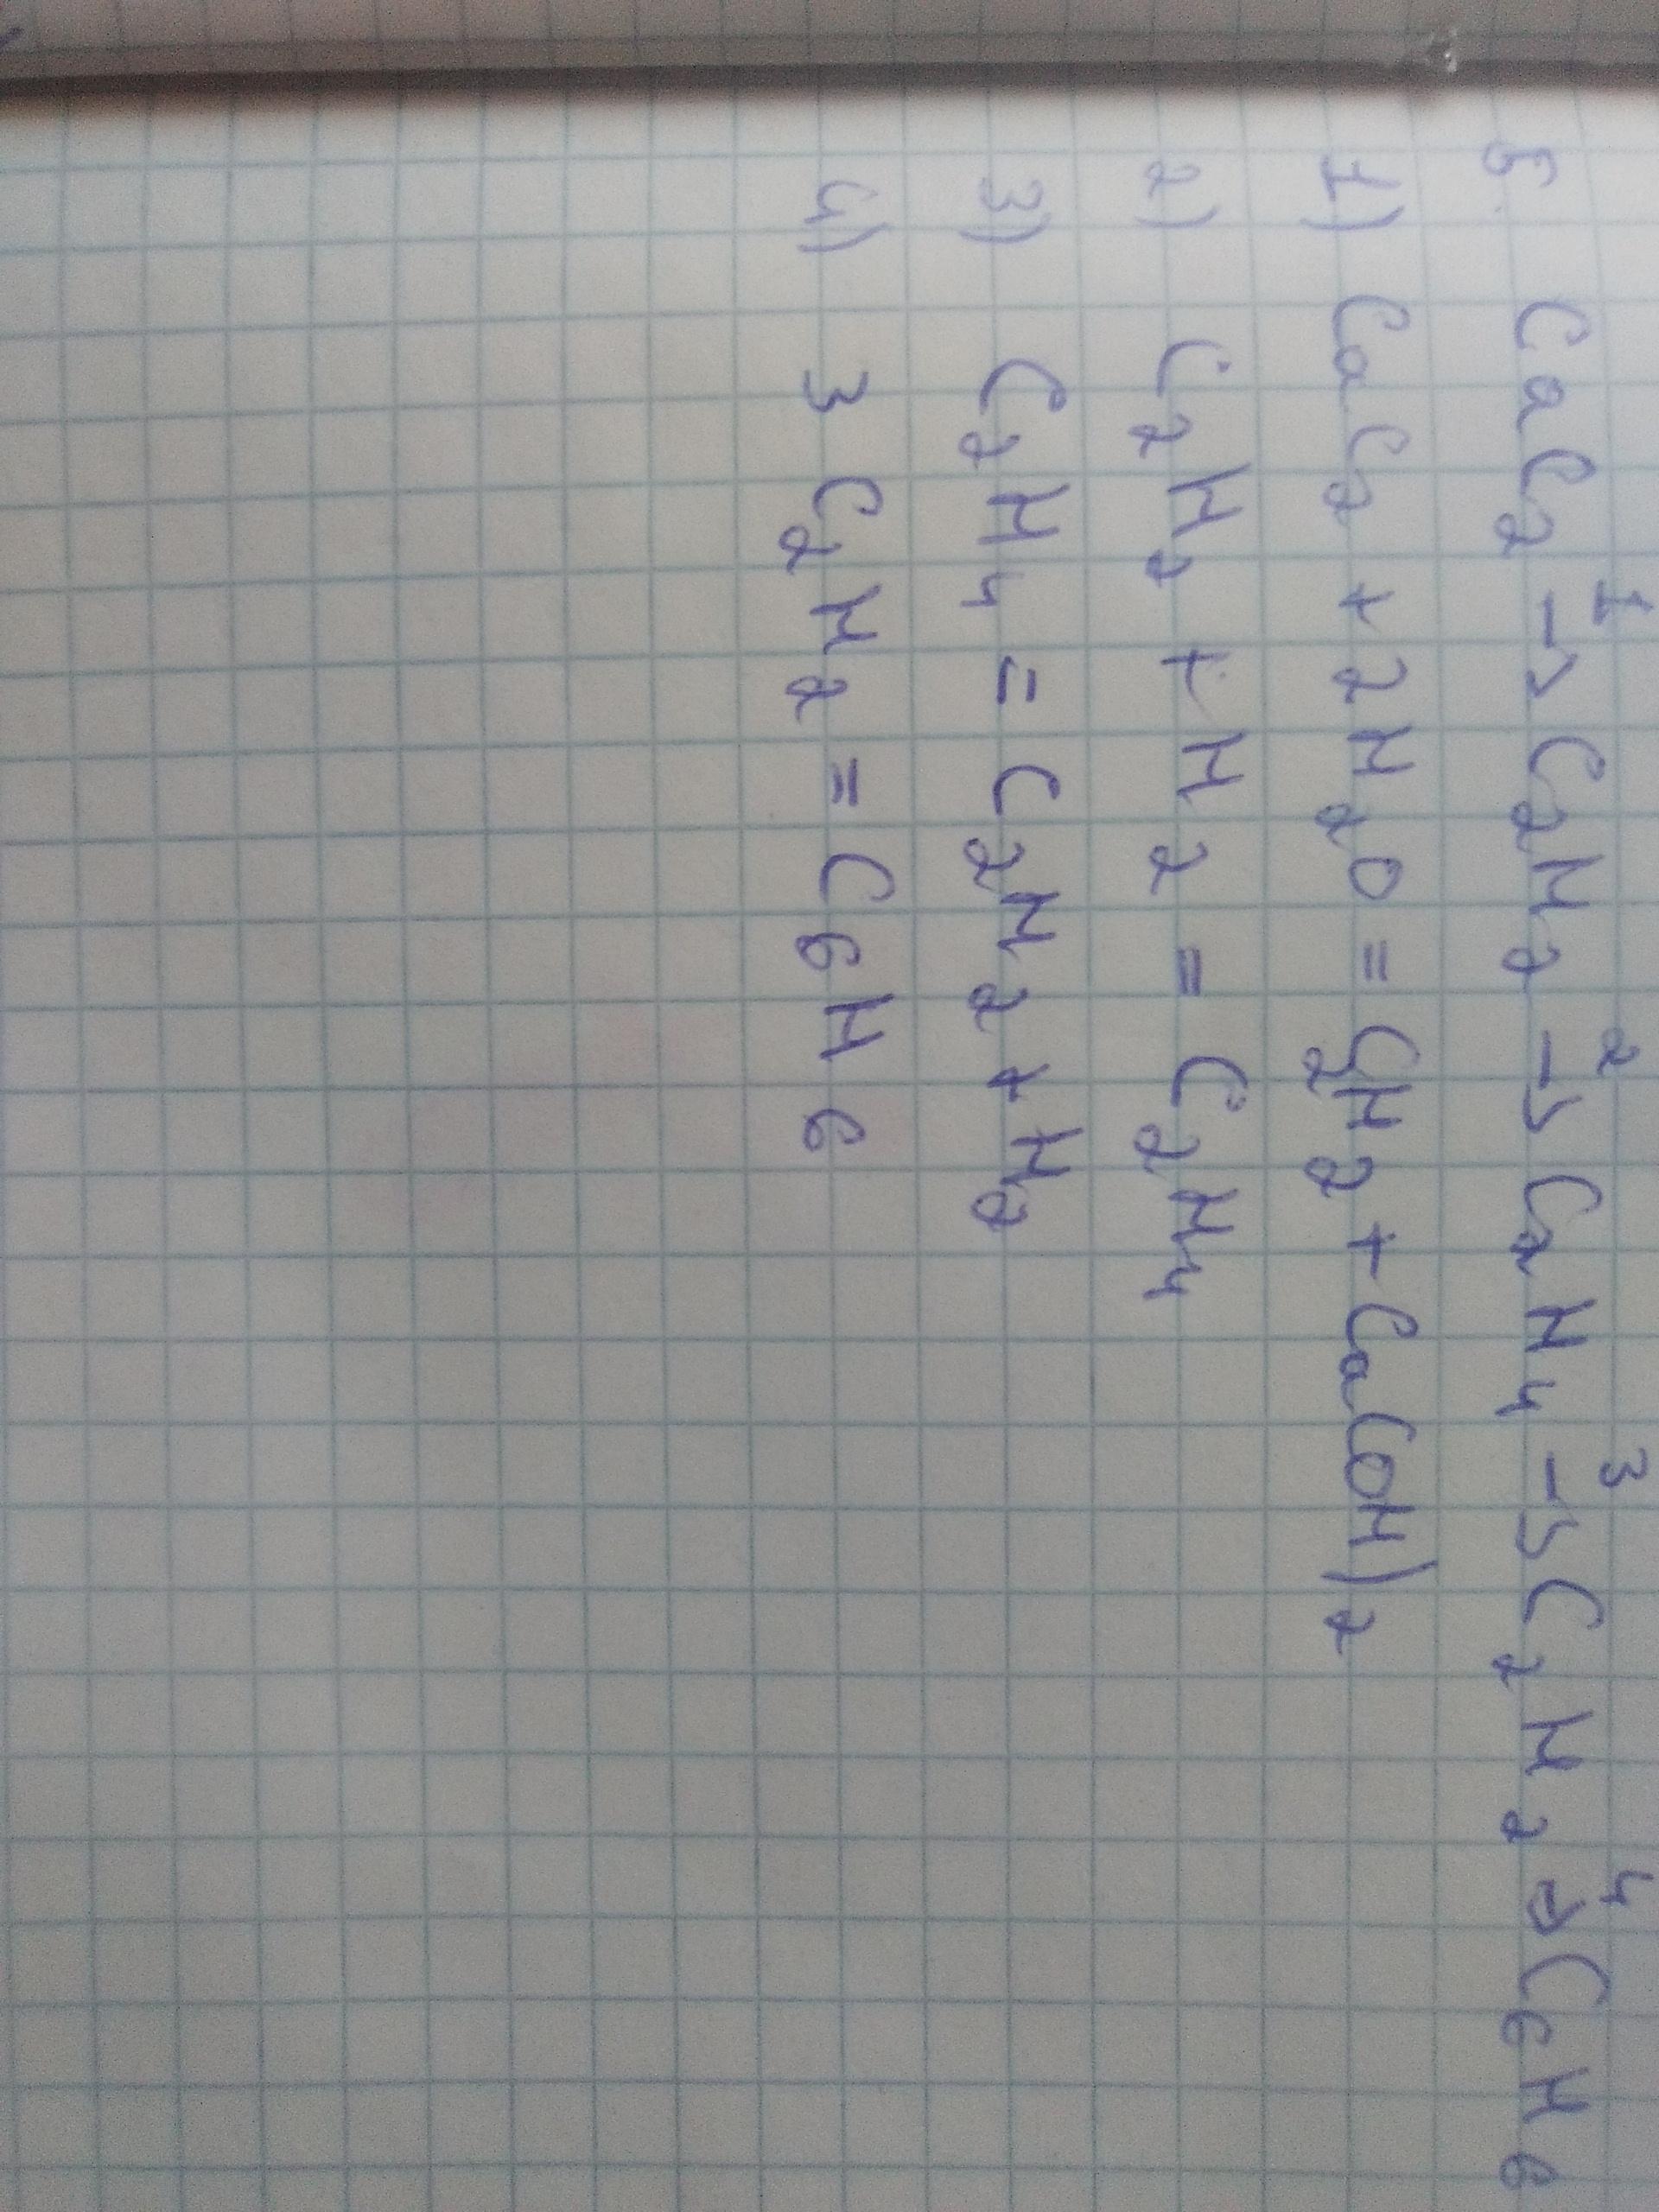 5. CaC₂ →¹ C₂H₂ →² C₂H₄ →³ C₂H₂ →⁴ C₆H₆
1) CaC₂ + 2H₂O = C₂H₂ + Ca(OH)₂
2) C₂H₂ + H₂ = C₂H₄
3) C₂H₄ = C₂H₂ + H₂
4) 3 C₂H₂ = C₆H₆